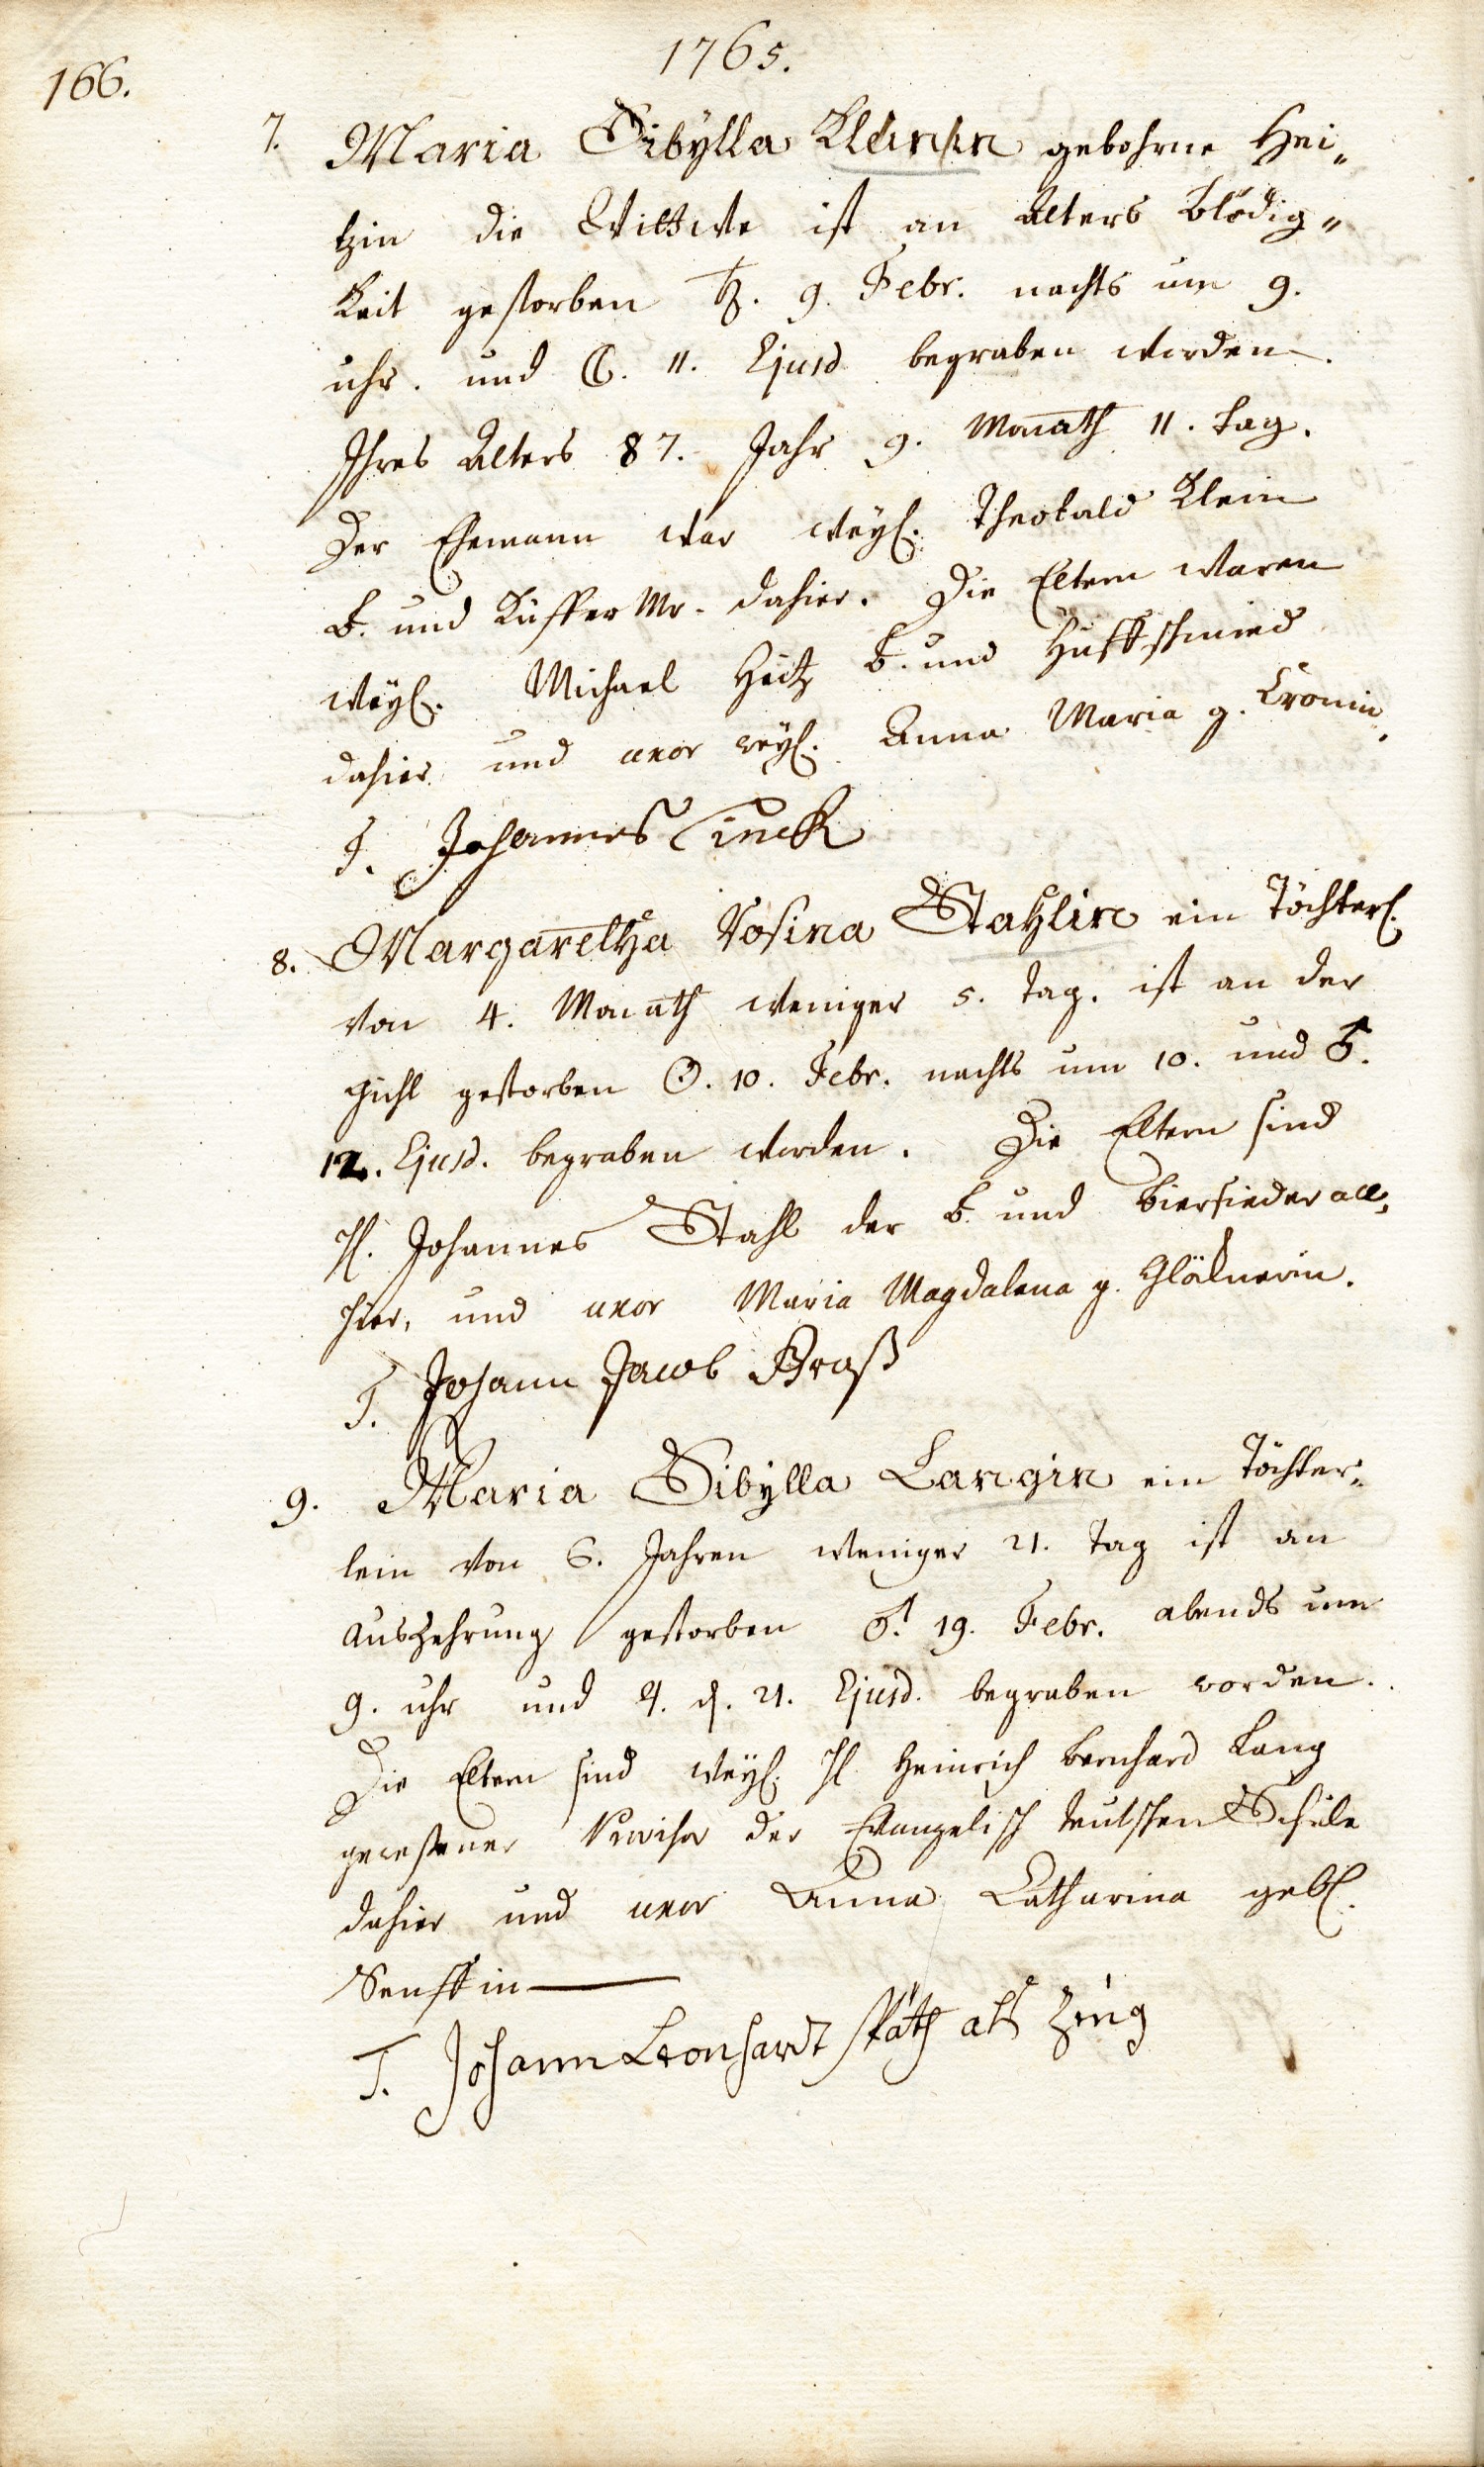 166.
1765.
7. Maria Sibylla Kleinin gebohrne Hei„
tzin die Wittwe ist an Alters Blödig„
keit gestorben ♄. 9. Febr. nachts um 9.
uhr. und ☾. 11. Ejusd begraben worden.
Ihres Alters 87. Jahr 9. Monath 11. tag.
Der Ehemann war weyl. Theobald Klein
B. und Küffer Mr. dahier. Die Eltern waren
weyl. Michael Heitz B. und Huffschmied
dahier und uxor weyl. Anna Maria g. Cronin.
T. Johannes Finck
8. Margaretha Rosina Stahlin ein Töchterl.
von 4. Monath weniger 5. tag. ist an der
Gicht gestorben ☉. 10. Febr. nachts um 10. und ♂.
12. Ejusd. begraben worden. Die Eltern sind
H. Johannes Stahl der B. und Biersieder all„
hier, und uxor Maria Magdalena g. Glöknerin.
T. Johann Jacob Braß
9. Maria Sibylla Langin ein Töchter„
lein von 6. Jahren weniger 21. Tag ist an
Auszehrung gestorben ♂. 19. Febr. abends um
9. uhr und ♃. d. 21. Ejusd. begraben worden.
Die Eltern sind weyl. H. Heinrich Bernhard Lang
gewesener Provisor der Evangelisch teutschen Schule
dahier und uxor Anna Catharina gebl.
Senfftin
T. Johann Leonhardt Späth als Zeug